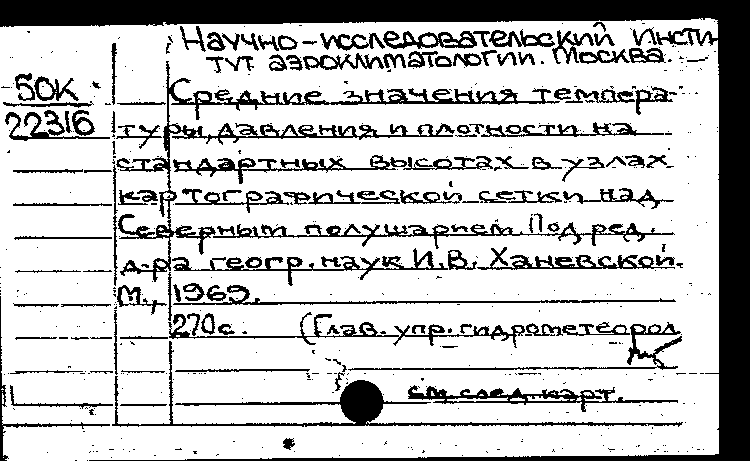 Научно-исследовательский инсти-
тут аэроклиматологии. Москва.
50К
22316
Средние значения темпера-
туры, давления и плотности на
стандартных высотах в узлах
картографической сетки над
Северным полушарием. Под ред.
д-ра геогр. наук И.В. Ханевской.
М., 1969.
270с. (Глав. упр. гидрометеорол
см. след. карт.